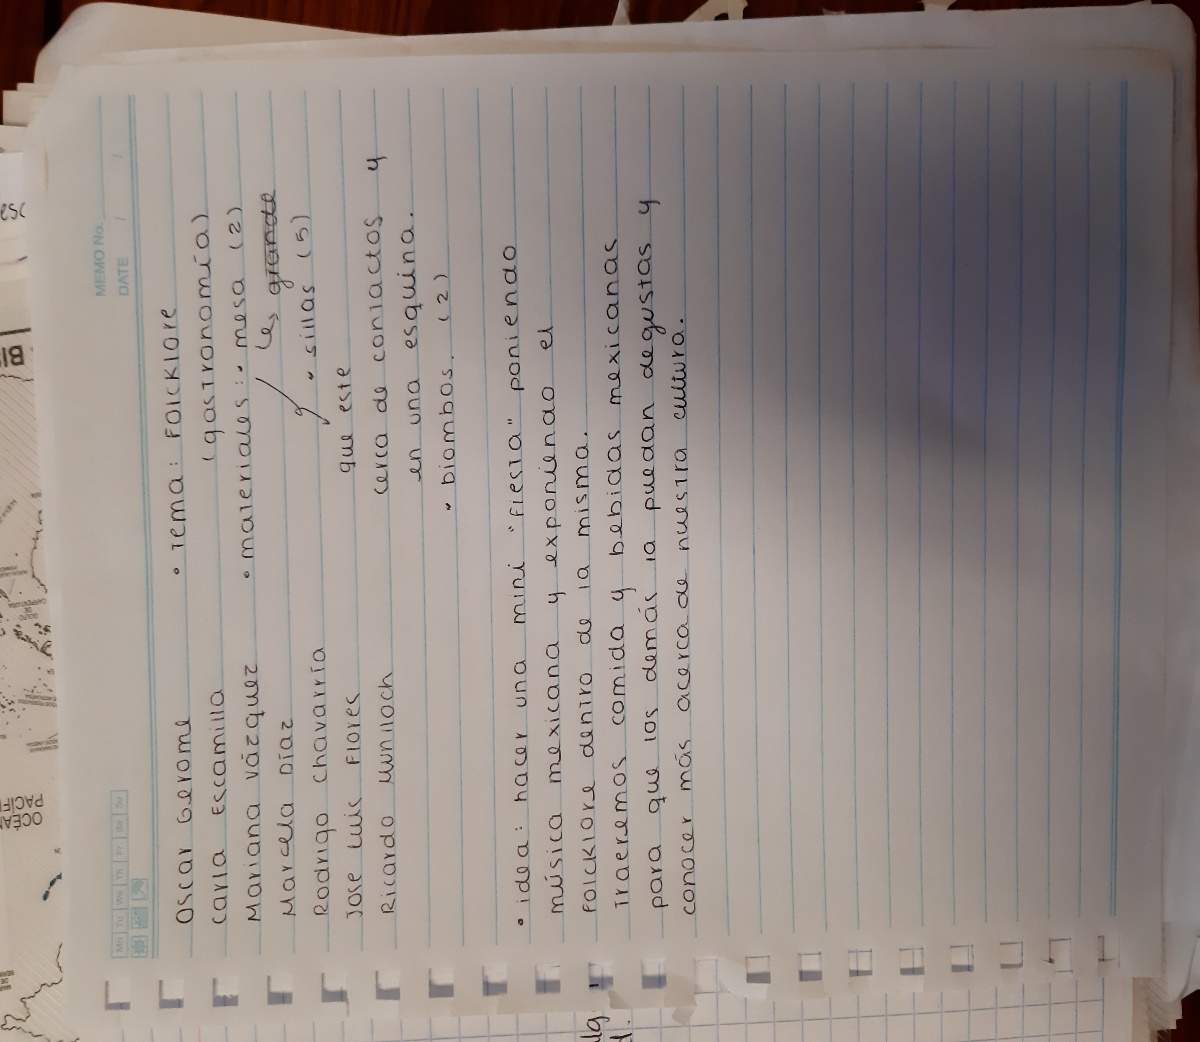 MEMO No.
DATE / /
Mo Tu We Th Fr Sa Su
Oscar Gerome
Carla Escamilla
Mariana Vázquez
Marcela Díaz
Rodrigo Chavarría
Jose Luis Flores
Ricardo
• Tema: Folcklore
(gastronomía)
• materiales: • mesa (2)
grande
• sillas (5)
que este
cerca de contactos y
en una esquina.
• biombos. (2)
• idea: hacer una mini "fiesta" poniendo
música mexicana y exponiendo el
folcklore dentro de la misma.
Traeremos comida y bebidas mexicanas
para que los demás la puedan degustas y
conocer más acerca de nuestra cultura.
esc
OCÉAN
PACÍFI
BI